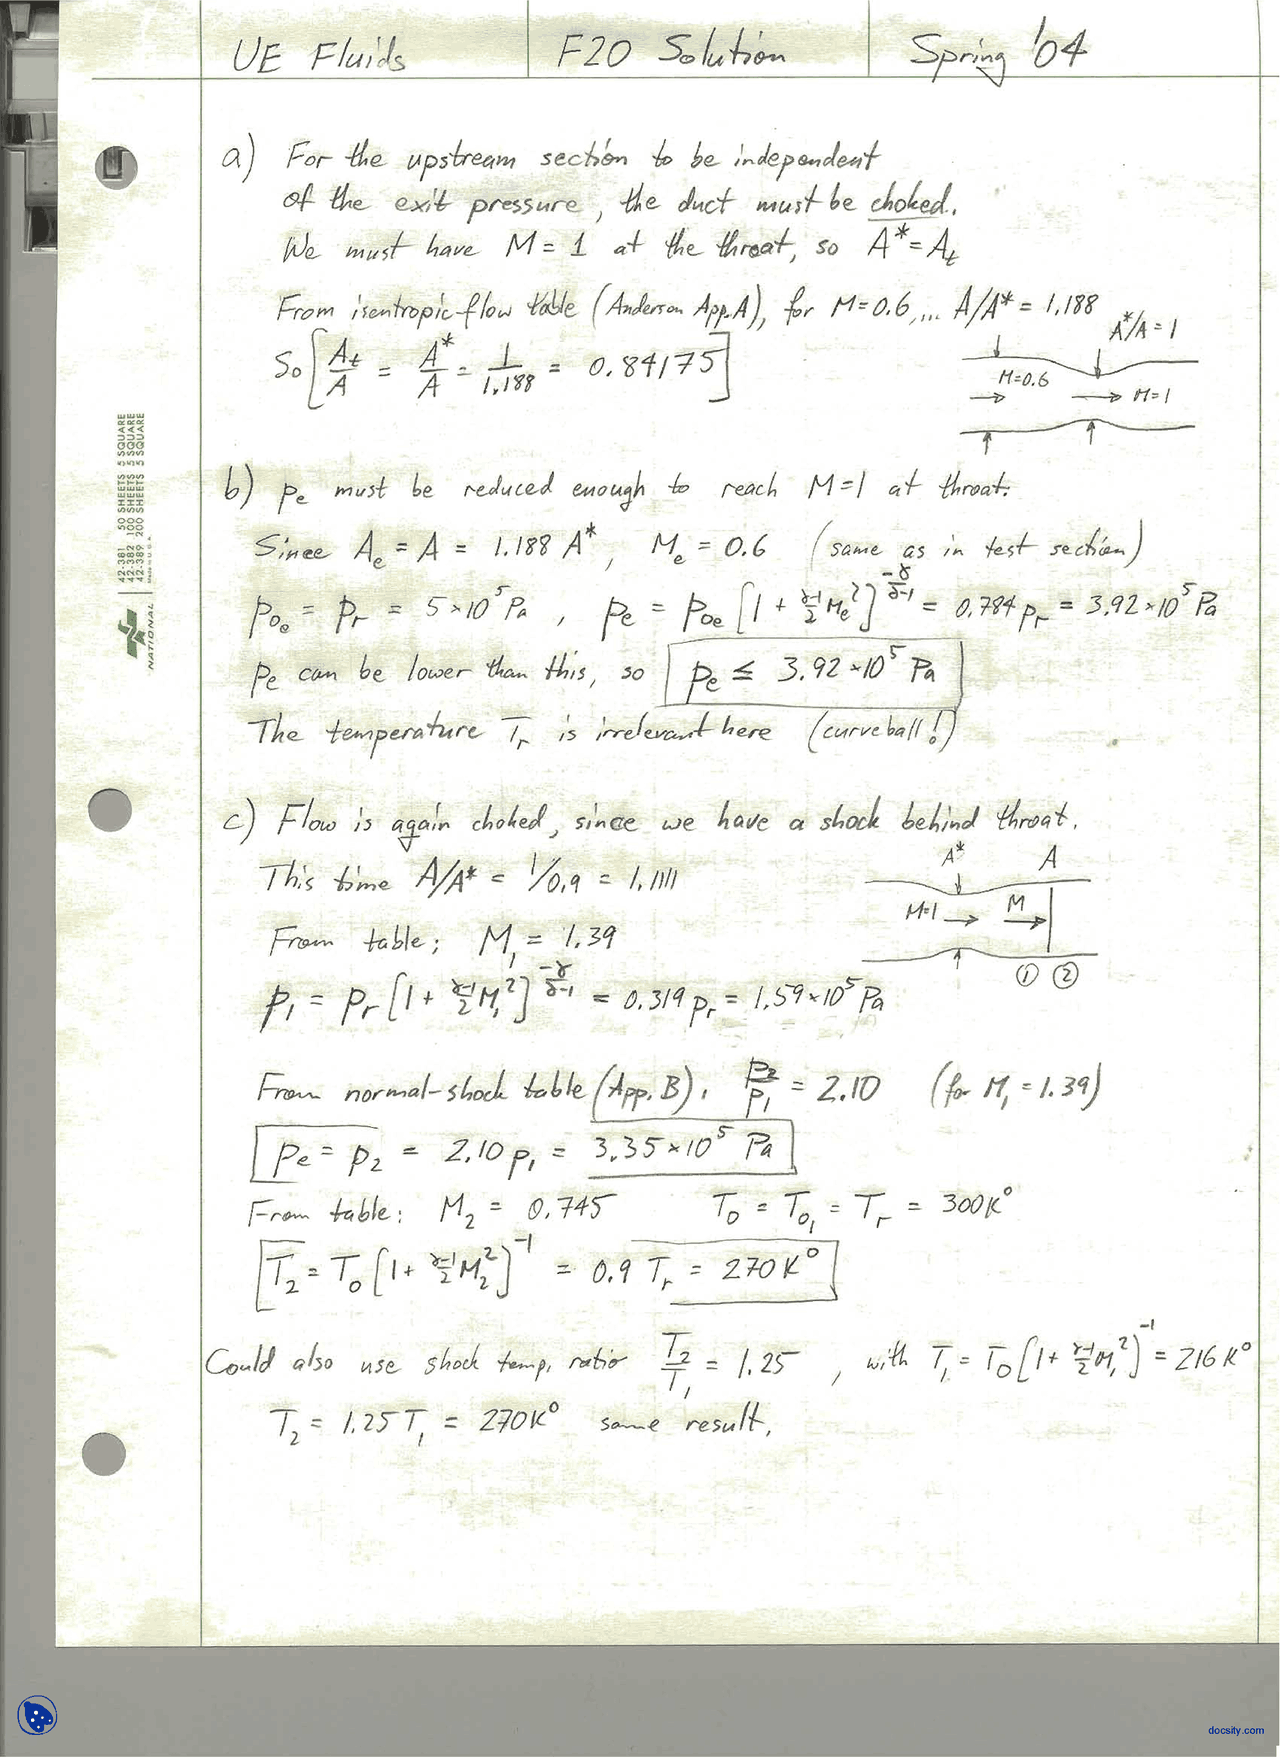 UE Fluids F20 Solution Spring '04
a) For the upstream section to be independent
of the exit pressure, the duct must be choked.
We must have M = 1 at the throat, so A* = A_t
From isentropic-flow table (Anderson App. A), for M=0.6,... A/A* = 1.188
A*/A = 1
So [A_t/A = A*/A = 1/1.188 = 0.84175]
M=0.6
M=1
b) p_e must be reduced enough to reach M=1 at throat.
Since A_e = A = 1.188 A*, M_e = 0.6 (same as in test section)
p_oe = p_r = 5×10^5 Pa, p_e = p_oe [1 + γ-1/2 M_e^2]^(-γ/γ-1) = 0.784 p_r = 3.92×10^5 Pa
p_e can be lower than this, so p_e ≤ 3.92×10^5 Pa
The temperature T_r is irrelevant here (curveball!)
c) Flow is again choked, since we have a shock behind throat.
A* A
This time A/A* = 1/0.9 = 1.1111
M=1 M
From table: M_1 = 1.39
① ②
p_1 = p_r [1 + γ-1/2 M_1^2]^(-γ/γ-1) = 0.319 p_r = 1.59×10^5 Pa
From normal-shock table (App. B), p_2/p_1 = 2.10 (for M_1 = 1.39)
p_e = p_2 = 2.10 p_1 = 3.35×10^5 Pa
From table: M_2 = 0.745 T_o = T_o1 = T_r = 300K°
T_2 = T_o [1 + γ-1/2 M_2^2]^-1 = 0.9 T_r = 270K°
Could also use shock temp. ratio T_2/T_1 = 1.25, with T_1 = T_o [1 + γ-1/2 M_1^2]^-1 = 216K°
T_2 = 1.25 T_1 = 270K° same result.
42-381 50 SHEETS 5 SQUARE
42-382 100 SHEETS 5 SQUARE
42-389 200 SHEETS 5 SQUARE
Made in U.S.A.
NATIONAL
docsity.com